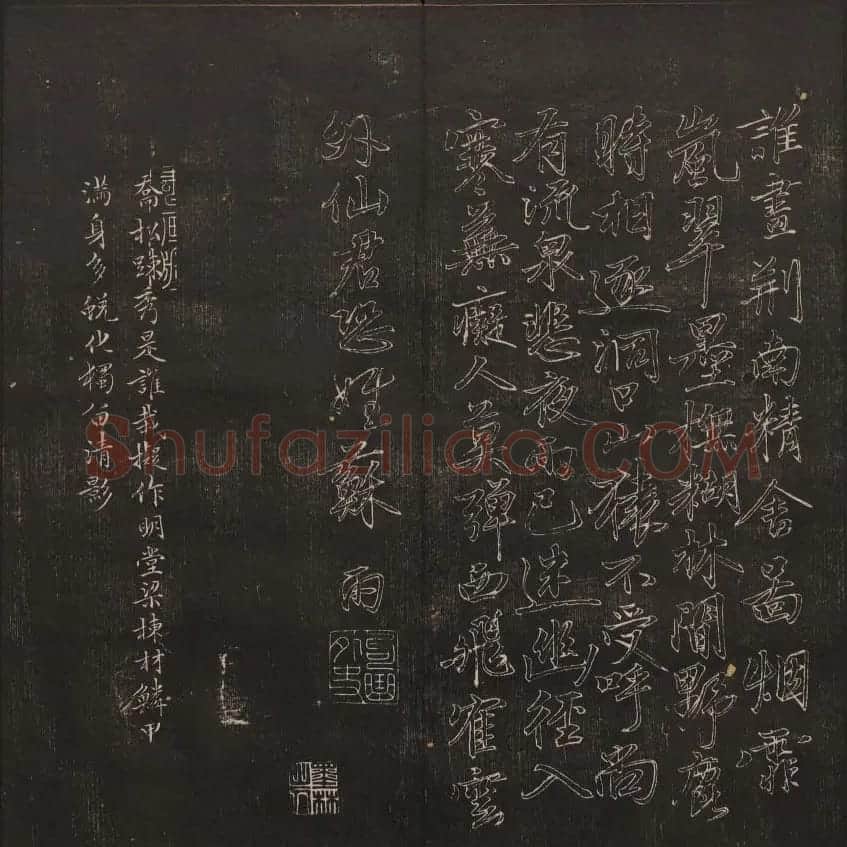 誰畫荆南精舍啚烟霏
嵐翠墨橅糊林間野鹿
時相逐洞口山猿不受呼尚
有流泉悲夜雨已迷幽徑入
寒蕪癡人莫彈西飛隺雲
外仙君恐姓蘇 雨
墨林山人
喬松踈秀是誰栽擬作明堂梁棟材鱗甲
滿身多蛻化獨留清影
Shufaziliao.COM